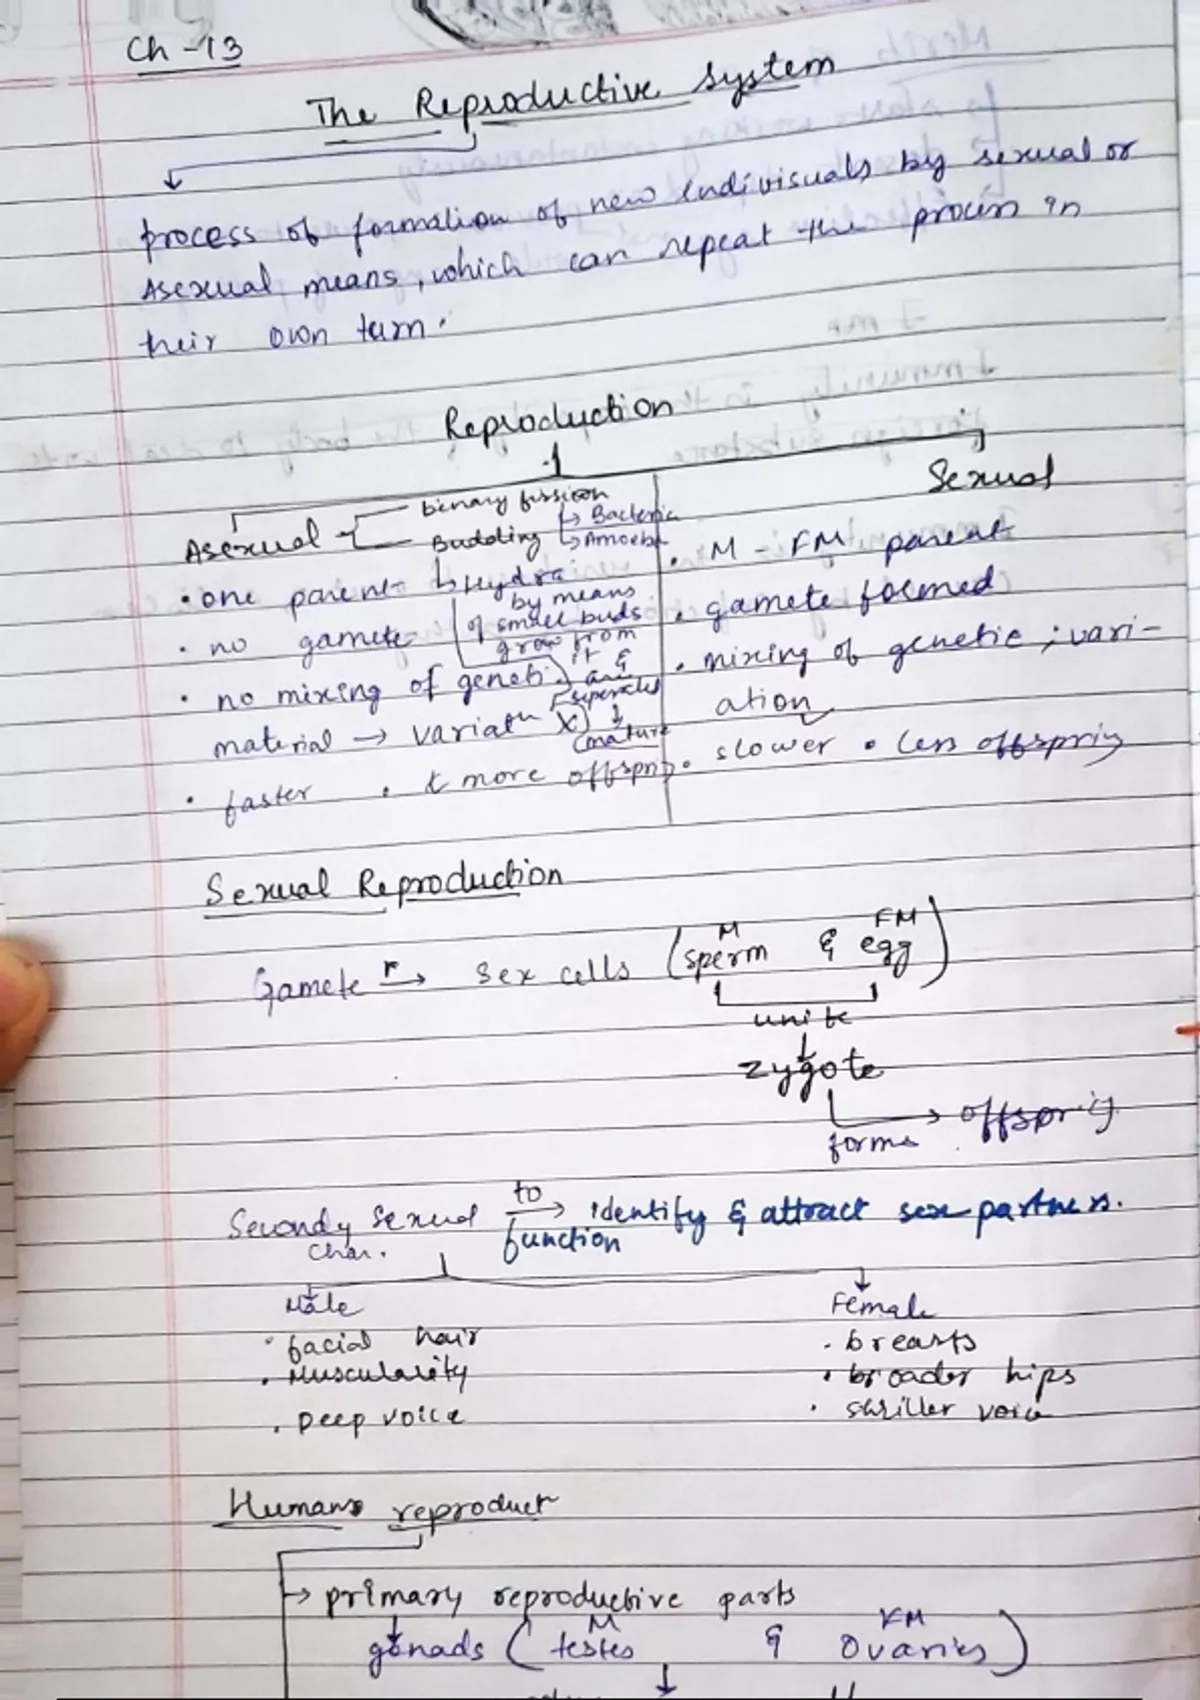 Ch - 13
The Reproductive System
process of formation of new indivisuals by sexual or
Asexual means, which can repeat the process in
their own turn.
Reproduction
Asexual
binary fission
Bacteria
Amoeba
Budding
Hydra
by means
of small buds
grow from
it &
and
seperates
(mature
• one parent
• no gamete
• no mixing of geneti
material → variatn X)
• faster • & more offspring
Sexual
• M - FM parent
• gamete formed
• mixing of genetic ; vari-
ation
• slower • less offspring
Sexual Reproduction
Gamete → sex cells (sperm & egg)
M FM
unite
zygote
forms → offspring
Secondy Sexual char. to function → identify & attract sex partners.
Male
• facial hair
• Muscularity
• Deep voice
Female
• breasts
• broader hips
• shriller voice
Humans reproduct
→ primary reproductive parts
M FM
gonads (testes & Ovaries)